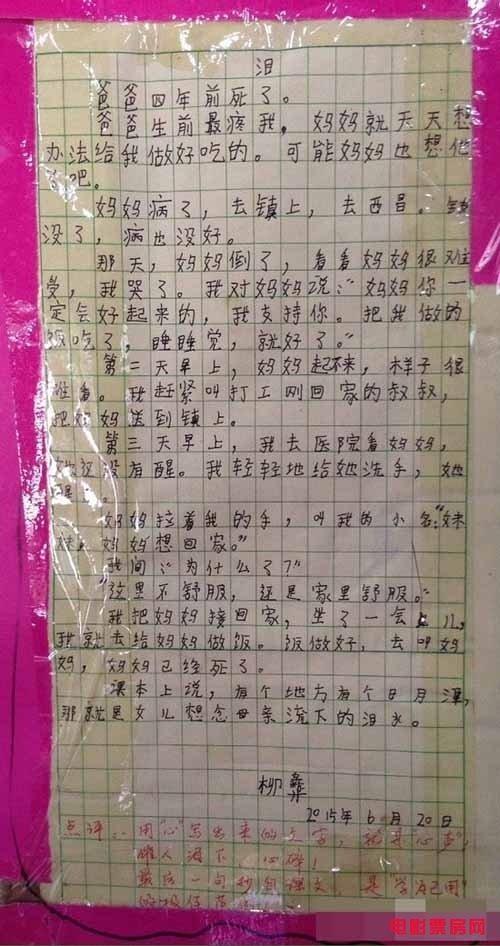 泪
爸爸四年前死了。
爸爸生前最疼我,妈妈就天天想
办法给我做好吃的。可能妈妈也想他
了吧。
妈妈病了,去镇上,去西昌。钱
没了,病也没好。
那天,妈妈倒了,看看妈妈很难
受,我哭了。我对妈妈说:“妈妈你一
定会好起来的,我支持你。把我做的
饭吃了,睡睡觉,就好了。”
第二天早上,妈妈起不来,样子很
难看。我赶紧叫打工刚回家的叔叔,
把妈妈送到镇上。
第三天早上,我去医院看妈妈,
她还没有醒。我轻轻地给她洗手,她
醒了。
妈妈拉着我的手,叫我的小名:“妹
妹,妈妈想回家。”
我问:“为什么了?”
“这里不舒服,还是家里舒服。”
我把妈妈接回家,坐了一会儿,
我就去给妈妈做饭。饭做好,去叫妈
妈,妈妈已经死了。
课本上说,有个地方有个日月潭,
那就是女儿想念母亲流下的泪水。
柳彝
2015年6月20日
点评:用“心”写出来的文字,就是“心声”,
催人泪下,心碎!
最后一句妙自课文,是“学为己用”
电影票房网